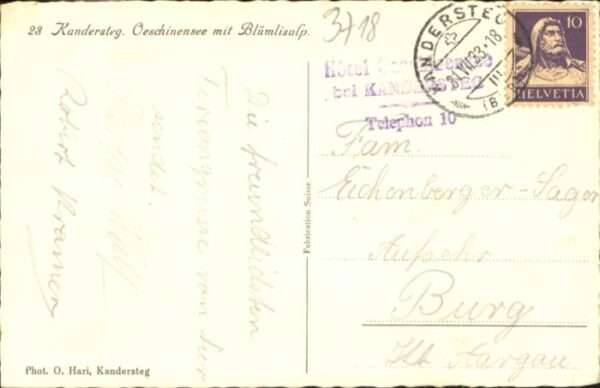 23 Kandersteg. Oeschinensee mit Blümlisalp.
3718
KANDERSTEG
10
HELVETIA
Hôtel Oeschinensee
bei KANDERSTEG
Telephon 10
Die freundlichsten
Feriengrüsse von hier
sendet
Robert Kramer
Fabrication Suisse
Fam.
Eichenberger-Sager
Aufsehr
Burg
Kt. Aargau
Phot. O. Hari, Kandersteg